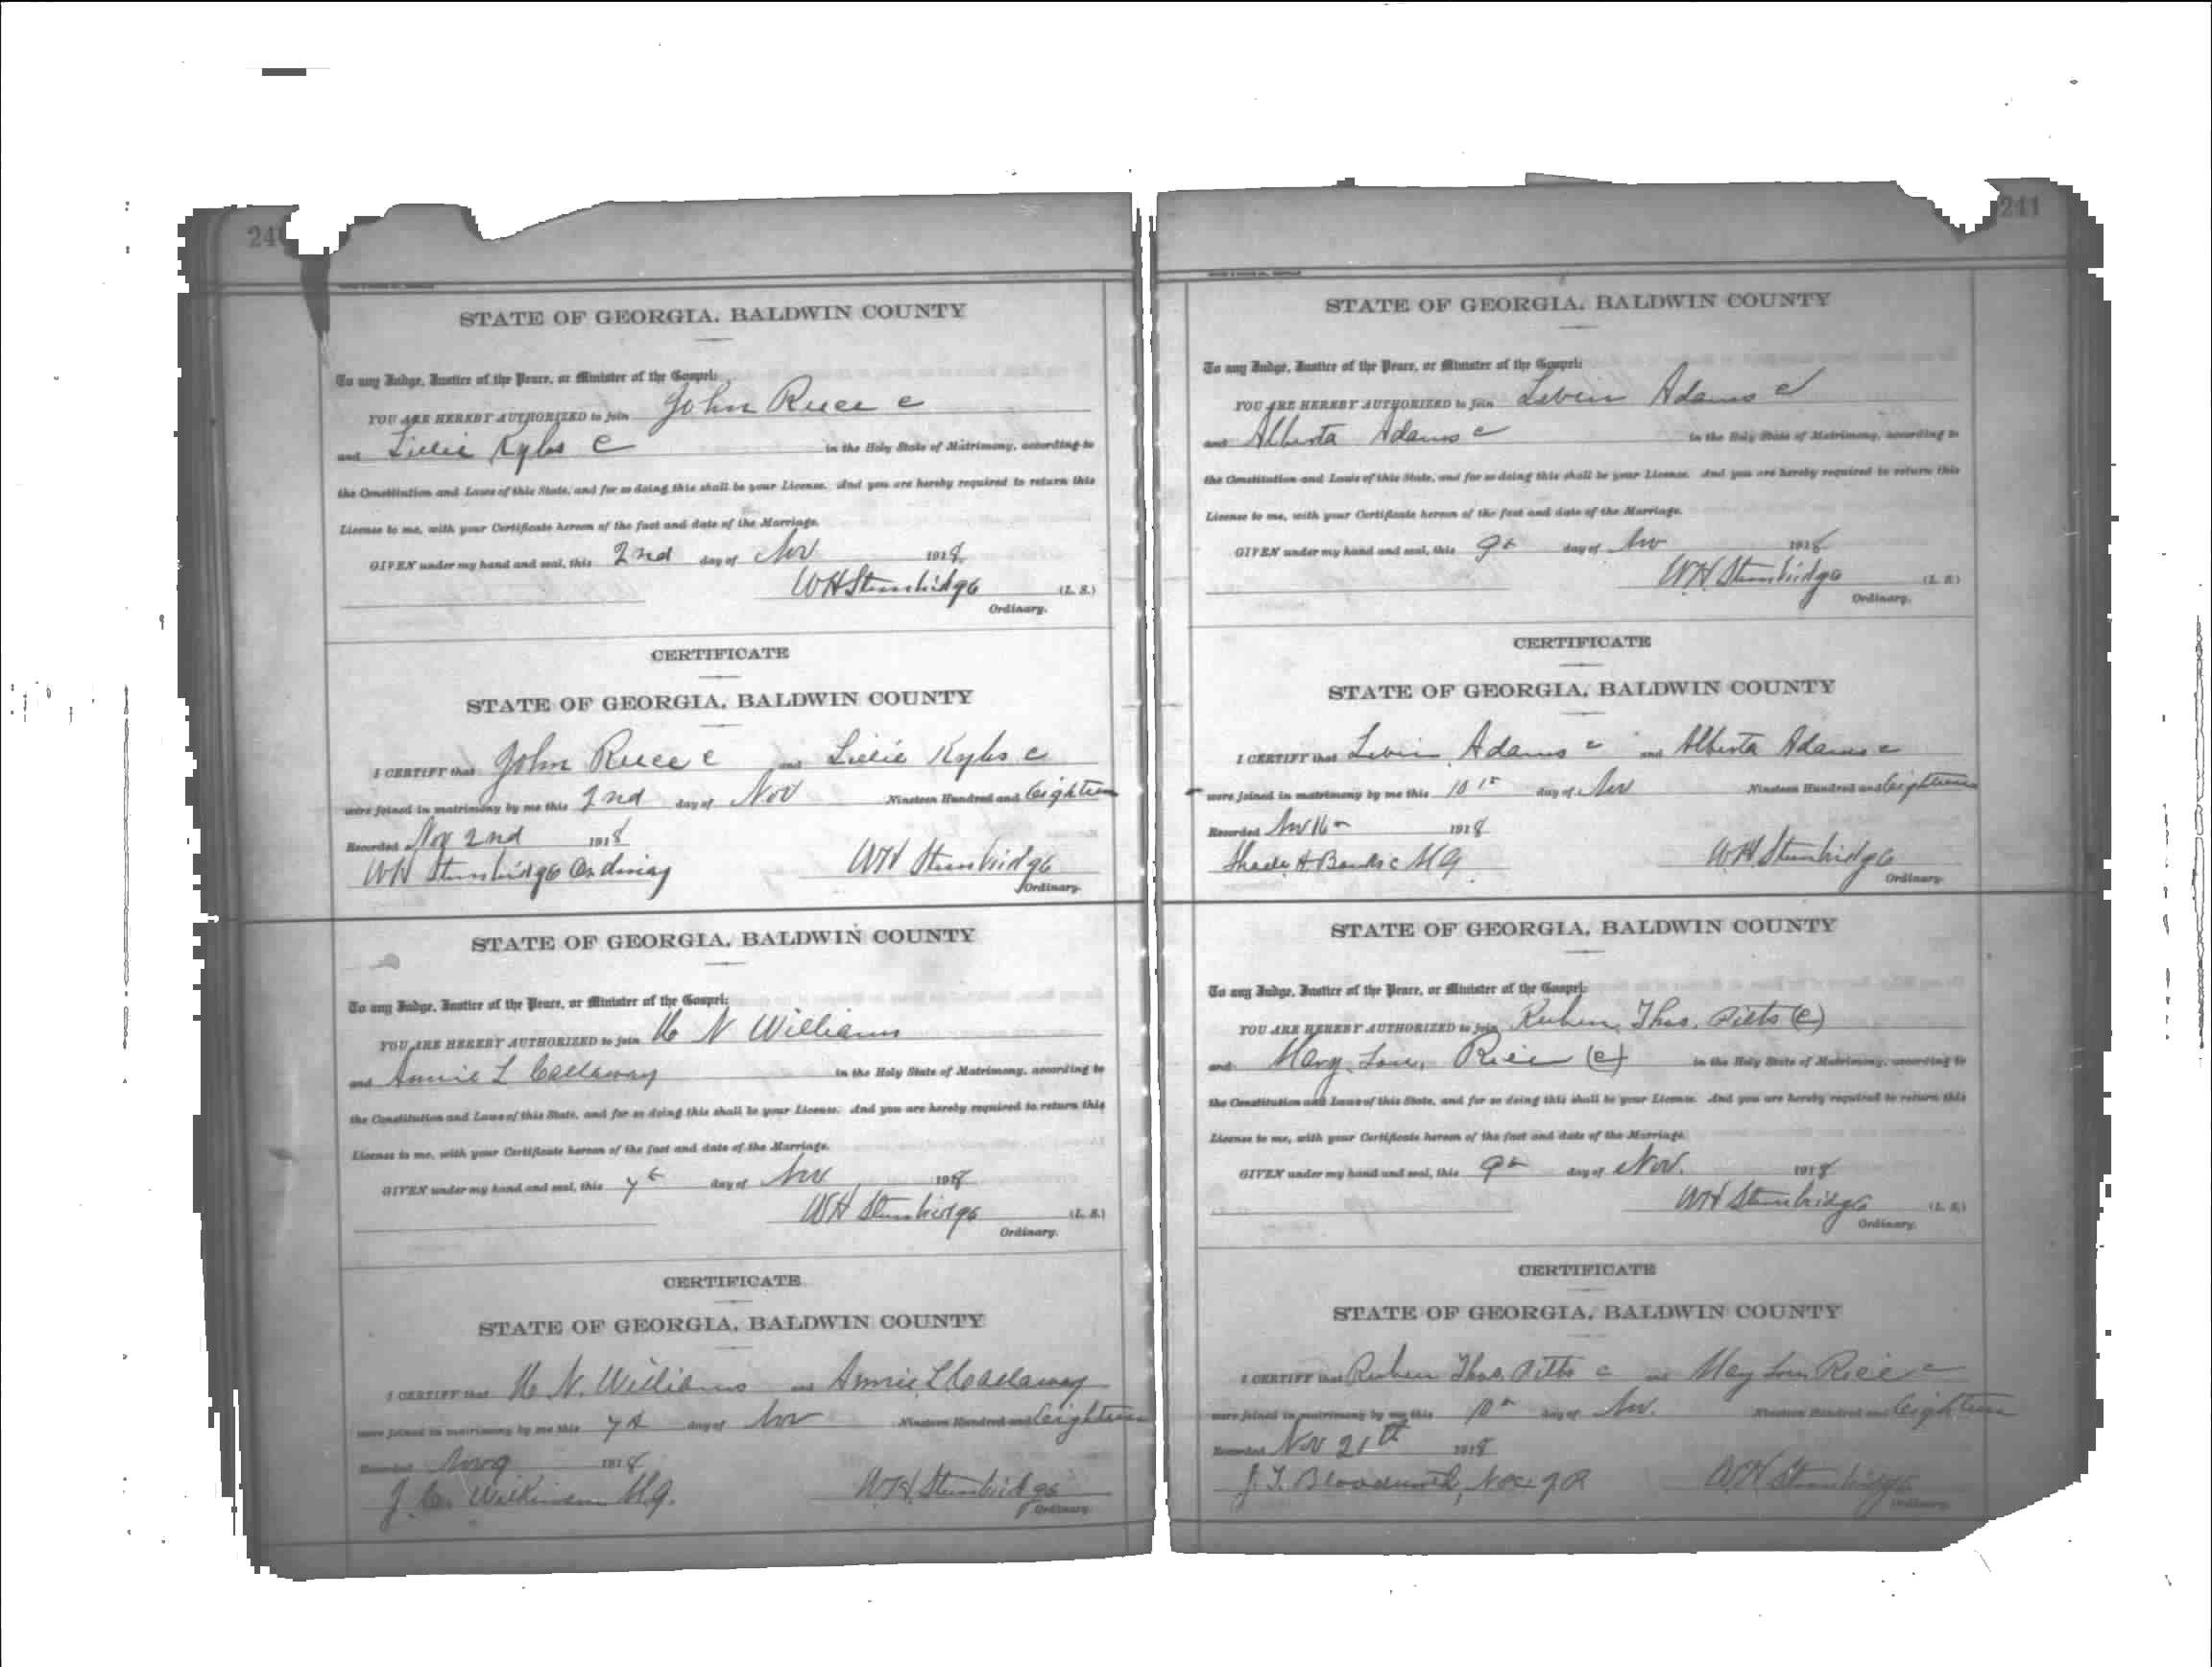 24
STATE OF GEORGIA, BALDWIN COUNTY
To any Judge, Justice of the Peace, or Minister of the Gospel:
YOU ARE HEREBY AUTHORIZED to join John Reece c
and Lillie Kyles C in the Holy State of Matrimony, according to
the Constitution and Laws of this State, and for so doing this shall be your License. And you are hereby required to return this
License to me, with your Certificate hereon of the fact and date of the Marriage.
GIVEN under my hand and seal, this 2nd day of Nov 1918
WH Stembridge (L. S.)
Ordinary.
CERTIFICATE
STATE OF GEORGIA, BALDWIN COUNTY
I CERTIFY that John Reece c and Lillie Kyles c
were joined in matrimony by me this 2nd day of Nov Nineteen Hundred and Eighteen
Recorded Nov 2nd 1918
WH Stembridge Ordinary WH Stembridge
Ordinary
STATE OF GEORGIA, BALDWIN COUNTY
To any Judge, Justice of the Peace, or Minister of the Gospel:
YOU ARE HEREBY AUTHORIZED to join N Williams
and Annie L Callaway in the Holy State of Matrimony, according to
the Constitution and Laws of this State, and for so doing this shall be your License. And you are hereby required to return this
License to me, with your Certificate hereon of the fact and date of the Marriage.
GIVEN under my hand and seal, this 7th day of Nov 1918
WH Stembridge (L. S.)
Ordinary.
CERTIFICATE
STATE OF GEORGIA, BALDWIN COUNTY
I CERTIFY that N. Williams and Annie L Callaway
were joined in matrimony by me this 7th day of Nov Nineteen Hundred and Eighteen
Recorded Nov 9 1918
J. C. Wilkinson M.G. W.H. Stembridge
Ordinary
241
STATE OF GEORGIA, BALDWIN COUNTY
To any Judge, Justice of the Peace, or Minister of the Gospel:
YOU ARE HEREBY AUTHORIZED to join Levin Adams c
and Alberta Adams c in the Holy State of Matrimony, according to
the Constitution and Laws of this State, and for so doing this shall be your License. And you are hereby required to return this
License to me, with your Certificate hereon of the fact and date of the Marriage.
GIVEN under my hand and seal, this 9th day of Nov 1918
W.H. Stembridge (L. S.)
Ordinary.
CERTIFICATE
STATE OF GEORGIA, BALDWIN COUNTY
I CERTIFY that Levin Adams c and Alberta Adams c
were joined in matrimony by me this 10th day of Nov Nineteen Hundred and Eighteen
Recorded Nov 16 1918
Banks c M G W.H. Stembridge
Ordinary
STATE OF GEORGIA, BALDWIN COUNTY
To any Judge, Justice of the Peace, or Minister of the Gospel:
YOU ARE HEREBY AUTHORIZED to join Ruben Thos. Pitts (c)
and Mary Lou Rice (c) in the Holy State of Matrimony, according to
the Constitution and Laws of this State, and for so doing this shall be your License. And you are hereby required to return this
License to me, with your Certificate hereon of the fact and date of the Marriage.
GIVEN under my hand and seal, this 9th day of Nov. 1918
WH Stembridge (L. S.)
Ordinary.
CERTIFICATE
STATE OF GEORGIA, BALDWIN COUNTY
I CERTIFY that Ruben Thos. Pitts c and May Lou Rice c
were joined in matrimony by me this 10th day of Nov. Nineteen Hundred and Eighteen
Recorded Nov 21th 1918
J. T. Bloodworth, WH Stembridge
Ordinary